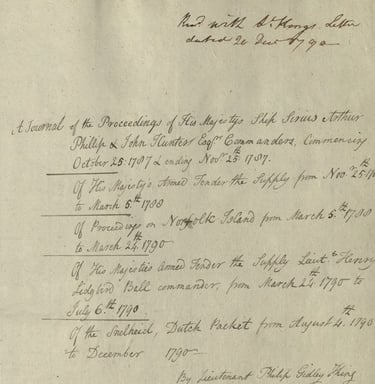 Recd with Lt Kings Letter
dated 20 Decr 1790
A Journal of the Proceedings of His Majestys Ship Sirius Arthur
Phillip & John Hunter Esqrs Commanders, Commencing
October 25 1787 & ending Novr 25th 1787.
Of His Majestys Armed Tender the Supply from Novr 25th
to March 5th 1788
Of Proceedings on Norfolk Island from March 5th 1788
to March 24th 1790
Of His Majesties Armed Tender the Supply Lieut. Henry
Lidgbird Ball commander, from March 24th 1790 to
July 6th 1790
Of the Snelheid, Dutch Packet from August 4th 1790
to December 1790
By Lieutenant Philip Gidley King